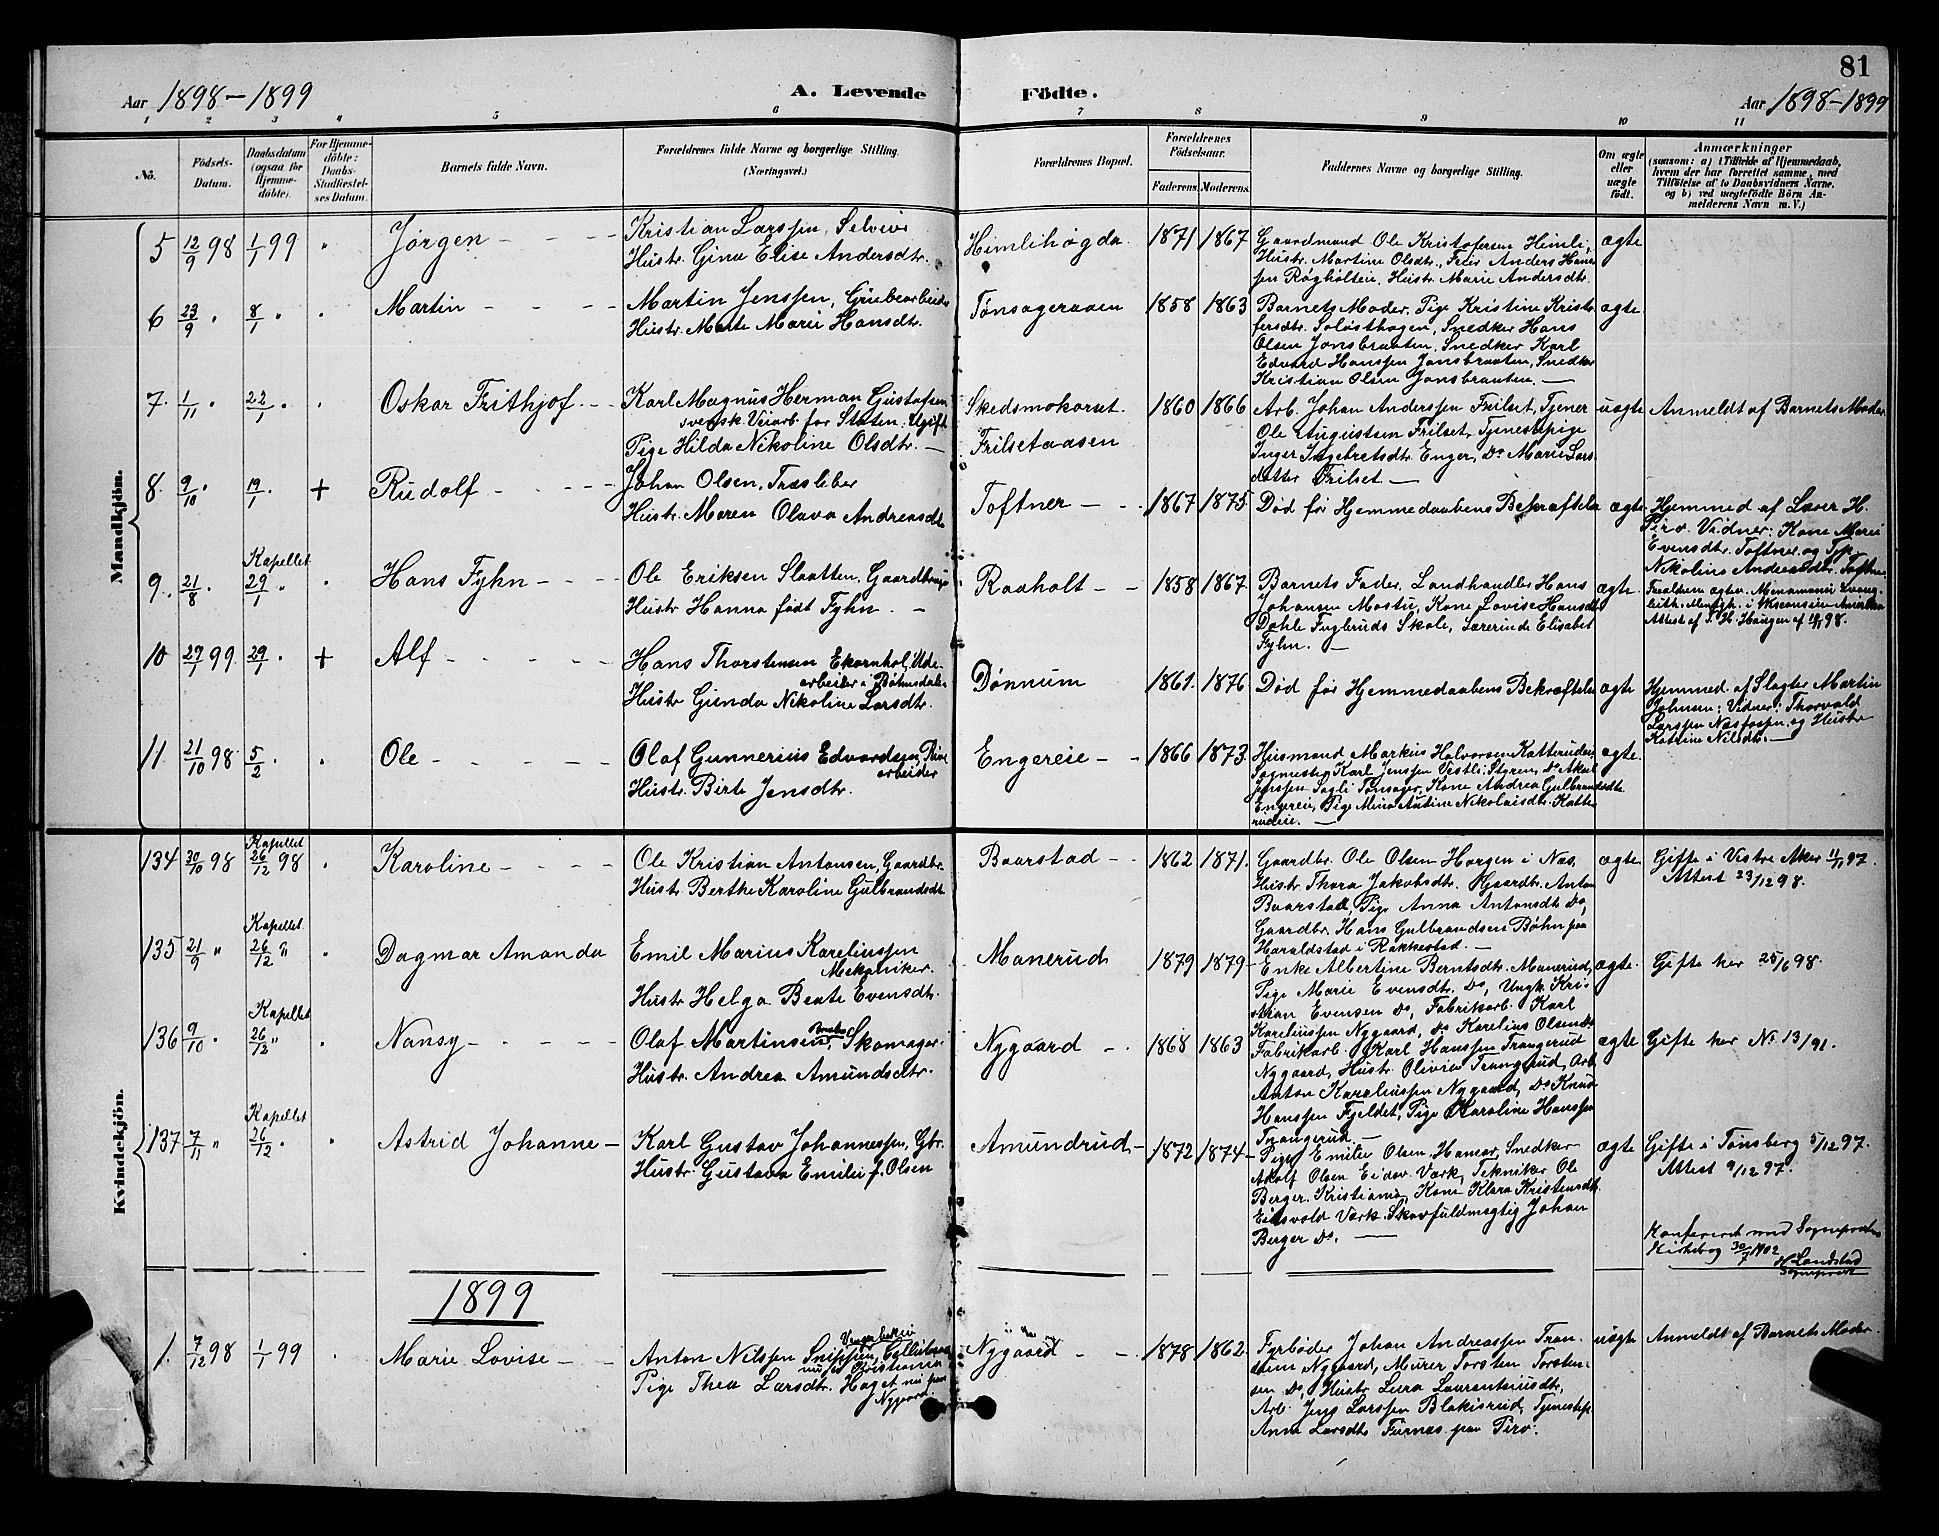 81
Aar 1898-1899
A. Levende Födte.
Aar 1898-1899
1 2 3 4 5 6 7 8 9 10 11
No.
Födsels-Datum.
Daabsdatum (ogsaa for Hjemmedöbte).
For Hjemmedöbte: Daabs-Stadfæstelses Datum.
Barnets fulde Navn.
Forældrenes fulde Navne og borgerlige Stilling. (Næringsvei.)
Forældrenes Bopæl.
Forældrenes Födselsaar.
Faderens. Moderens.
Faddernes Navne og borgerlige Stilling.
Om ægte eller uægte födt.
Anmærkninger
(saasom: a) i Tilfælde af Hjemmedaab,
hvem der har forrettet samme, med
Tilföielse af to Daabsvidners Navne.
og b) ved uægtefödte Börn Anmelderens Navn m. V.)
Mandkjön.
5 12/9 98 1/1 99 " Jørgen
Kristian Larssen, Selveier
Hustr. Gina Elise Andersdtr.
Himlihøgda 1871 1867
Gaardmand Ole Kristofersen Himli,
Hustr. Martine Olsdtr., Anders Hans-
sen Røgholtei, Hustr. Marie Andersdtr.
ægte
6 23/9 " 8/1 " " Martin
Martin Jenssen, Grubearbeider
Hustr. Marte Marie Hansdtr.
Tønsageraaen 1858 1863
Barnets Moder, Pige Kristine Kristo-
fersdtr. Soløsthagen, Snedker Hans
Olsen Jønsbraaten, Snedker Karl
Edvard Hanssen Jønsbraaten, Snedker
Kristian Olsen Jønsbraaten. —
ægte
7. 1/11 " 22/1 " " Oskar Frithjof
Karl Magnus Herman Gustafsen
svensk Veiarb. for Staten. Ugift
Pige Hilda Nikoline Olsdtr. —
Skedsmokorset. Frilsetaasen
1860 1866
Arb. Johan Anderssen Frilset, Tjener
Ole Augustsen Frilset, Tjenestepige
Inger Ingebretsdtr. Enger, Do Marie Lars-
datter Frilset —
uægte Anmeldt af Barnets Moder
8. 9/10 " 19/1 " + Rudolf
Johan Olsen, Træsliber
Hustr. Maren Olava Andreasdtr
Toftner — 1867 1875
Død før Hjemmedaabens Bekræftelse ægte
Hjemmed af Lærer H.
Piro. Vidner: Kone Marie
Evensdtr. Toftner og
Nikoline Andreasdtr. Toftner
9. 21/8 " Kapellet 29/1 " " Hans Fyhn
Ole Eriksen Slaatten, Gaardbruger
Hustr. Hanna født Fyhn. —
Raaholt 1858 1867
Barnets Fader, Landhandler Hans
Johansen Mostu, Kone Lovise Hansdtr
Dahle Fuglerud Skole, Lærerinde Elisabet
Fyhn. —
ægte Forældrene
i Wisconsin Amerika
Attest af 98.
10 27/1 99. 29/1 " + Alf
Hans Thorstensen Ekornhol, Ude-
arbeider i Bøhnsdalen
Hustr. Gunda Nikoline Larsdtr.
Dønnum 1861. 1876
Død før Hjemmedaabens Bekræftelse ægte
Hjemmed af Slagter Martin
Johnsen; Vidner: Thorvald
Larssen og Hustr.
Katrine Nilsdtr. —
11. 21/10 98 5/2 " " Ole
Olaf Gunnerius Edvardsen,
arbeider
Hustr. Birte Jensdtr.
Engereie 1866 1873
Husmand Markus Halvorsen Katterudeie,
Karl Jenssen Vestli,
Tønsager, Kone Andrea Gulbrandsdtr.
Engereie, Pige Mina Nikolaisdtr. Katte-
rudeie. —
ægte
Kvindekjön.
134 30/10 98 Kapellet 26/12 98 " Karoline
Ole Kristian Antonsen, Gaardbr.
Hustr. Berthe Karoline Gulbrandsdtr.
Baarstad 1862 1871
Gaardbr. Ole Olsen Horgen i Næs.
Hustr. Thora Jakobsdtr. Gaardbr. Anton
Baarstad, Pige Anna Antonsdtr Do,
Gaardbr. Hans Gulbrandsen Bøhn paa
Haraldstad i Rakkestad. —
ægte Gifte i Vestre Aker 11/1 97.
Attest 23/12 98.
135 21/9 " Kapellet 26/12 " " Dagmar Amanda
Emil Marius Kareliussen
Mekaniker.
Hustr. Helga Beate Evensdtr.
Manerud 1879 1879
Enke Albertine Berntsdtr. Manerud,
Pige Marie Evensdtr. Do, Ungk. Kri-
stian Evensen Do, Fabrikarb. Karl
Kareliussen Nygaard, Do Karelius Olsen Do
ægte. Gifte her 25/6 98.
136 9/10 " Kapellet 26/12 " " Nansy
Olaf Martinsen, Skomager.
Hustr. Andrea Amundsdtr.
Nygaard 1868 1863
Fabrikarb. Karl Hanssen Trangerud
Nygaard, Hustr. Olivia Trangerud, Arb.
Anton Kareliussen Nygaard, Do Knud
Hanssen Fjeldet, Pige Karoline Hanssen
Trangerud. —
ægte Gifte her No 13/91.
137 7/11 " Kapellet 26/12 " " Astrid Johanne
Karl Gustav Johannessen, Gbr.
Hustr. Gustava Emilie f. Olsen
Amundrud 1872 1874
Pige Emilie Olsen Hamar, Snedker
Adolf Olsen Eidsv. Værk, Tekniker Ole
Berger. Kristiania, Kone Klara Kristensdtr.
Eidsvold Værk. Skovfuldmægtig Johan
Berger Do. —
ægte Gifte i Tønsberg 5/12 97.
Attest 9/12 97.
Konfereret med Sognepræstens
Kirkebog 30/7 1902
Landstad
Sognepræst
1899
1. 7/12 98 1/1 99 " Marie Lovise
Anton Nilssen
nu paa Christiania
Pige Thea Larsdtr. Haget nu paa
Nygaard.
Nygaard 1878 1862
Fyrbøder Johan Andreassen Tran-
Nygaard, Murer Torsten Torsten-
sen Do, Hustr. Lura Laurentiusdtr,
Arb. Jens Larssen Blakisrud, Tjenestep.
Anna Larsdtr Furnæs paa Piro.
uægte Anmeldt af Barnets Moder.